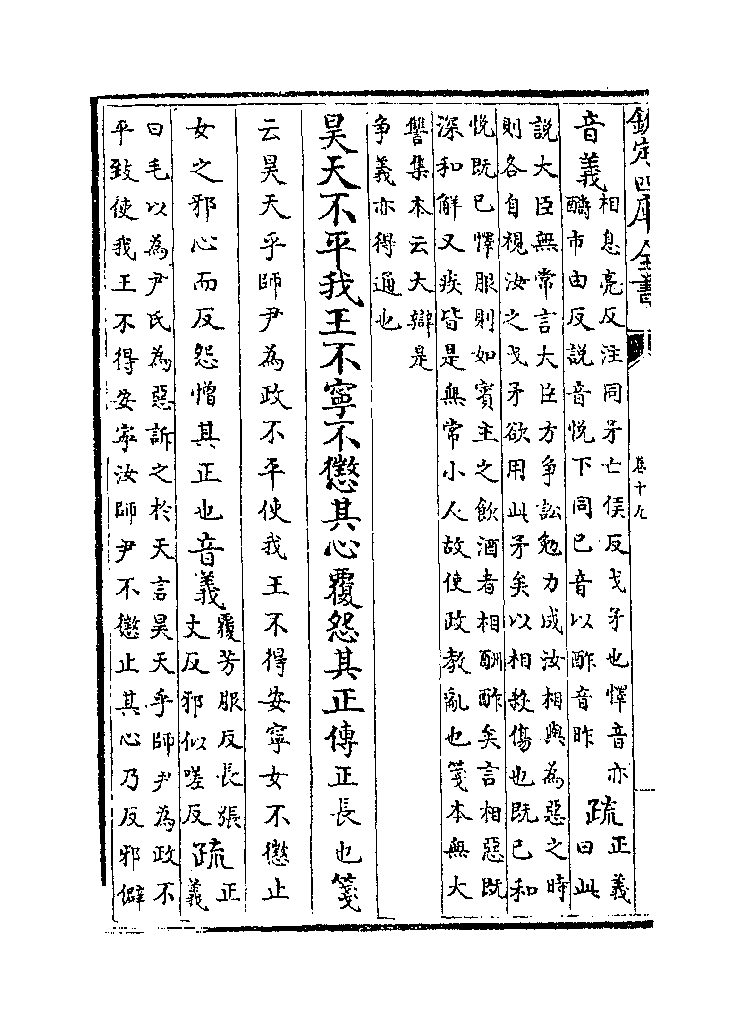 欽定四庫全書
卷十九
音義相息亮反注同矛亡侯反戈矛也懌音亦
醻市由反說音悅下同已音以酢音昨
疏正義
曰此
說大臣無常言大臣方争訟勉力成汝相與為惡之時
則各自視汝之戈矛欲用此矛矣以相殺傷也既已和
悅既已懌服則如賓主之飲酒者相酬酢矣言相惡既
深和解又疾皆是無常小人故使政教亂也箋本無大
讐集本云大辯是
争義亦得通也
昊天不平我王不寧不懲其心覆怨其正傳正長也箋
云昊天乎師尹為政不平使我王不得安寧女不懲止
女之邪心而反怨憎其正也音義覆芳服反長張
丈反邪似嗟反
疏正
義
曰毛以為尹氏為惡訴之於天言昊天乎師尹為政不
平致使我王不得安寧汝師尹不懲止其心乃反邪僻